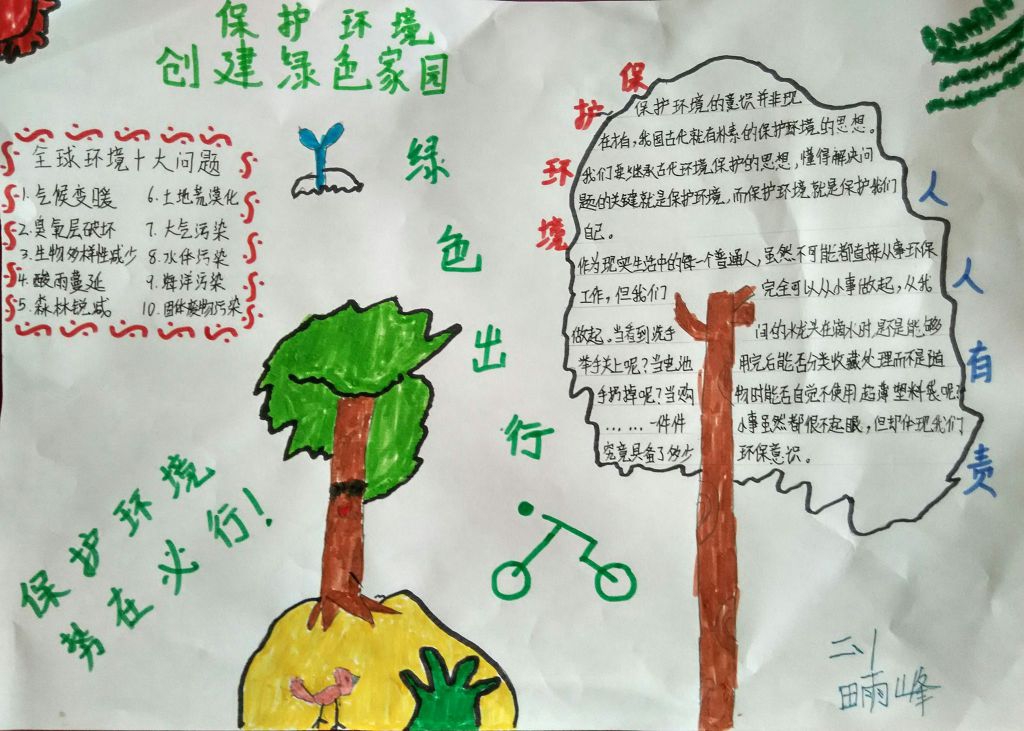 保护环境
创建绿色家园
全球环境十大问题
1.气候变暖
2.臭氧层破坏
3.生物多样性减少
4.酸雨蔓延
5.森林锐减
6.土地荒漠化
7.大气污染
8.水体污染
9.海洋污染
10.固体废物污染
绿色出行
保护环境
势在必行!
保护环境
人人有责
保护环境的意识并非现
在才有,我国古代就有朴素的保护环境的思想。
我们要继承古代环境保护的思想,懂得解决问
题的关键就是保护环境,而保护环境就是保护我们
自己。
作为现实生活中的每一个普通人,虽然不可能都直接从事环保
工作,但我们完全可以从小事做起,从我
做起。当看到洗手间的水龙头在滴水时,是不是能够
举手关上呢?当电池用完后能否分类收藏处理而不是随
手扔掉呢?当购物时能否自觉不使用超薄塑料袋呢?
……一件件小事虽然都很不起眼,但却体现我们
究竟具备了多少环保意识。
二、1
田雨峰